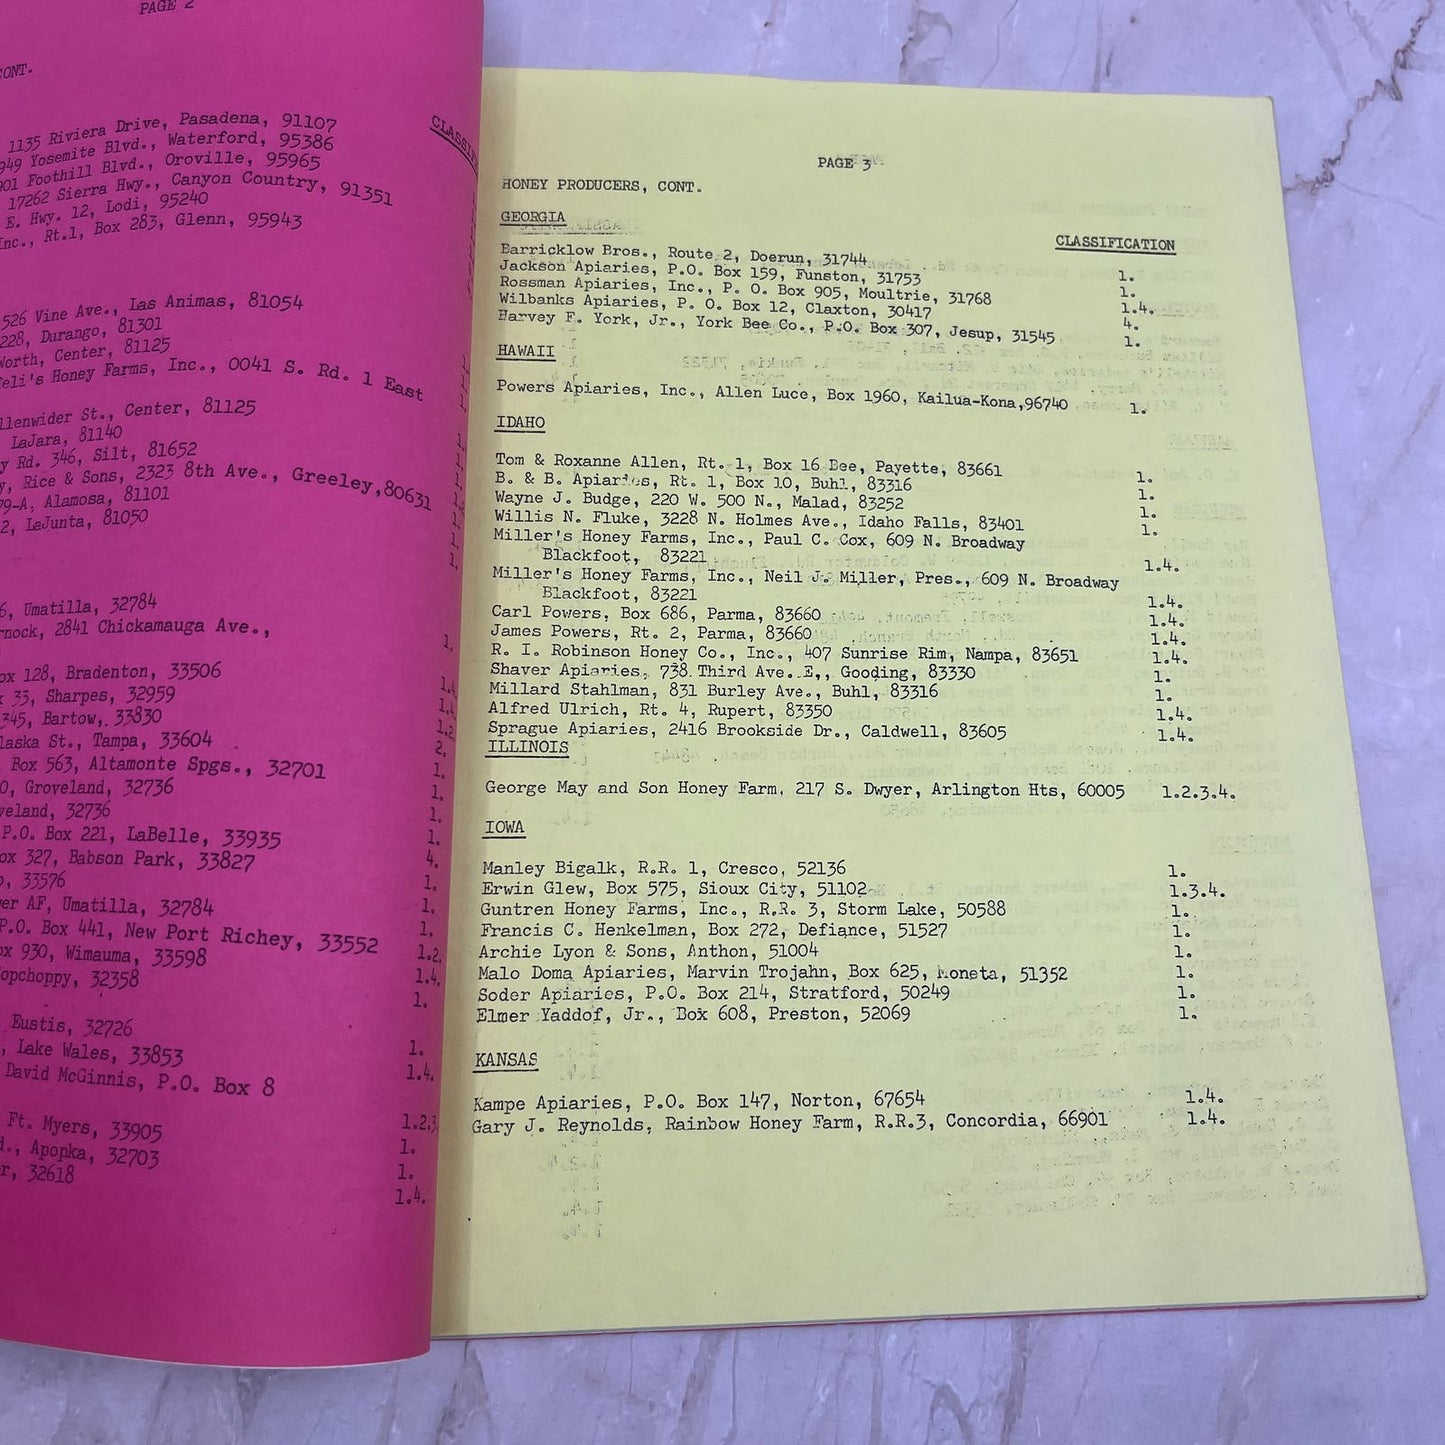 PAGE 2
CONT.
CLASSIF
1135 Riviera Drive, Pasadena, 91107
949 Yosemite Blvd., Waterford, 95386
Foothill Blvd., Oroville, 95965
17262 Sierra Hwy., Canyon Country, 91351
E. Hwy. 12, Lodi, 95240
Inc., Rt.1, Box 283, Glenn, 95943
526 Vine Ave., Las Animas, 81054
228, Durango, 81301
Worth, Center, 81125
eli's Honey Farms, Inc., 0041 S. Rd. 1 East
llenwider St., Center, 81125
LaJara, 81140
y Rd. 346, Silt, 81652
y, Rice & Sons, 2323 8th Ave., Greeley,80631
79-A, Alamosa, 81101
2, LaJunta, 81050
6, Umatilla, 32784
rnock, 2841 Chickamauga Ave.,
1.
ox 128, Bradenton, 33506 1.4
x 33, Sharpes, 32959 1.4.
345, Bartow, 33830 1.2
laska St., Tampa, 33604 2.
Box 563, Altamonte Spgs., 32701 1.
0, Groveland, 32736 1.
veland, 32736 1.
P.O. Box 221, LaBelle, 33935 1.
ox 327, Babson Park, 33827 4.
o, 33576 1.
er AF, Umatilla, 32784 1.
P.O. Box 441, New Port Richey, 33552 1.
ox 930, Wimauma, 33598 1.2.
opchoppy, 32358 1.4.
1.
Eustis, 32726
, Lake Wales, 33853 1.
David McGinnis, P.O. Box 8 1.4.
Ft. Myers, 33905 1.2.3.
d., Apopka, 32703 1.
r, 32618 1.
1.4.
PAGE 3
HONEY PRODUCERS, CONT.
GEORGIA
CLASSIFICATION
Barricklow Bros., Route 2, Doerun, 31744 1.
Jackson Apiaries, P.O. Box 159, Funston, 31753 1.
Rossman Apiaries, Inc., P. O. Box 905, Moultrie, 31768 1.4.
Wilbanks Apiaries, P. O. Box 12, Claxton, 30417 4.
Harvey F. York, Jr., York Bee Co., P.O. Box 307, Jesup, 31545 1.
HAWAII
Powers Apiaries, Inc., Allen Luce, Box 1960, Kailua-Kona,96740 1.
IDAHO
Tom & Roxanne Allen, Rt. 1, Box 16 Bee, Payette, 83661 1.
B. & B. Apiaries, Rt. 1, Box 10, Buhl, 83316 1.
Wayne J. Budge, 220 W. 500 N., Malad, 83252 1.
Willis N. Fluke, 3228 N. Holmes Ave., Idaho Falls, 83401 1.
Miller's Honey Farms, Inc., Paul C. Cox, 609 N. Broadway
Blackfoot, 83221 1.4.
Miller's Honey Farms, Inc., Neil J. Miller, Pres., 609 N. Broadway
Blackfoot, 83221 1.4.
Carl Powers, Box 686, Parma, 83660 1.4.
James Powers, Rt. 2, Parma, 83660 1.4.
R. I. Robinson Honey Co., Inc., 407 Sunrise Rim, Nampa, 83651 1.4.
Shaver Apiaries, 738 Third Ave. E,, Gooding, 83330 1.
Millard Stahlman, 831 Burley Ave., Buhl, 83316 1.
Alfred Ulrich, Rt. 4, Rupert, 83350 1.4.
Sprague Apiaries, 2416 Brookside Dr., Caldwell, 83605 1.4.
ILLINOIS
George May and Son Honey Farm, 217 S. Dwyer, Arlington Hts, 60005 1.2.3.4.
IOWA
Manley Bigalk, R.R. 1, Cresco, 52136 1.
Erwin Glew, Box 575, Sioux City, 51102 1.3.4.
Guntren Honey Farms, Inc., R.R. 3, Storm Lake, 50588 1.
Francis C. Henkelman, Box 272, Defiance, 51527 1.
Archie Lyon & Sons, Anthon, 51004 1.
Malo Doma Apiaries, Marvin Trojahn, Box 625, Moneta, 51352 1.
Soder Apiaries, P.O. Box 214, Stratford, 50249 1.
Elmer Yaddof, Jr., Box 608, Preston, 52069 1.
KANSAS
Kampe Apiaries, P.O. Box 147, Norton, 67654 1.4.
Gary J. Reynolds, Rainbow Honey Farm, R.R.3, Concordia, 66901 1.4.